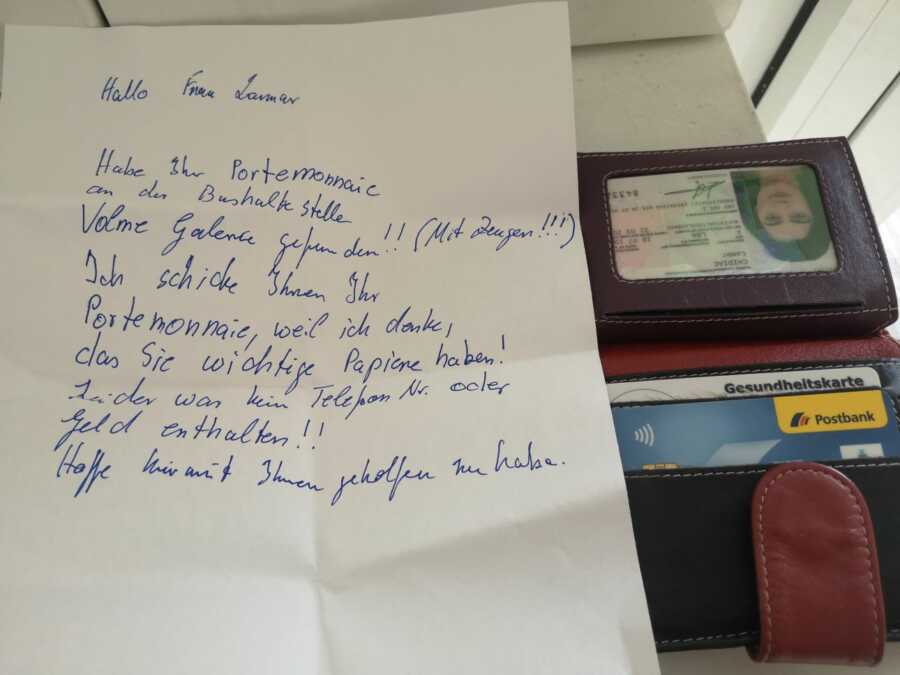 Hallo Frau
Habe Ihr Portemonnaie
an der Bushalte stelle
Volme Galerie gefunden!! (Mit Zeugen!!!)
Ich schicke Ihnen Ihr
Portemonnaie, weil ich denke,
das Sie wichtige Papiere haben!
Leider war kein Telefon Nr. oder
Geld enthalten!!
Hoffe hiermit Ihnen geholfen zu habe.
Gesundheitskarte
Postbank